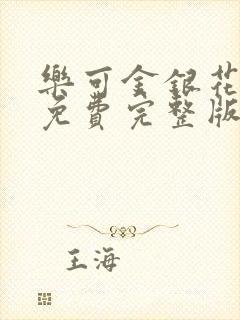 樂可金銀花
免費完整版
王海